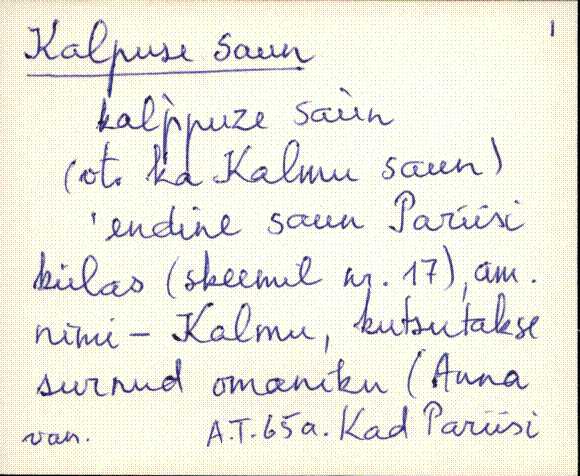 1
Kalpuse saun
kal̀ppuze saùn
(vt. ka Kalmu saun)
'endine saun Pariisi
külas (skeemil nr. 17), am.
nimi - Kalmu, kutsutakse
surnud omaniku (Anna
van. A.T. 65a. Kad Pariisi